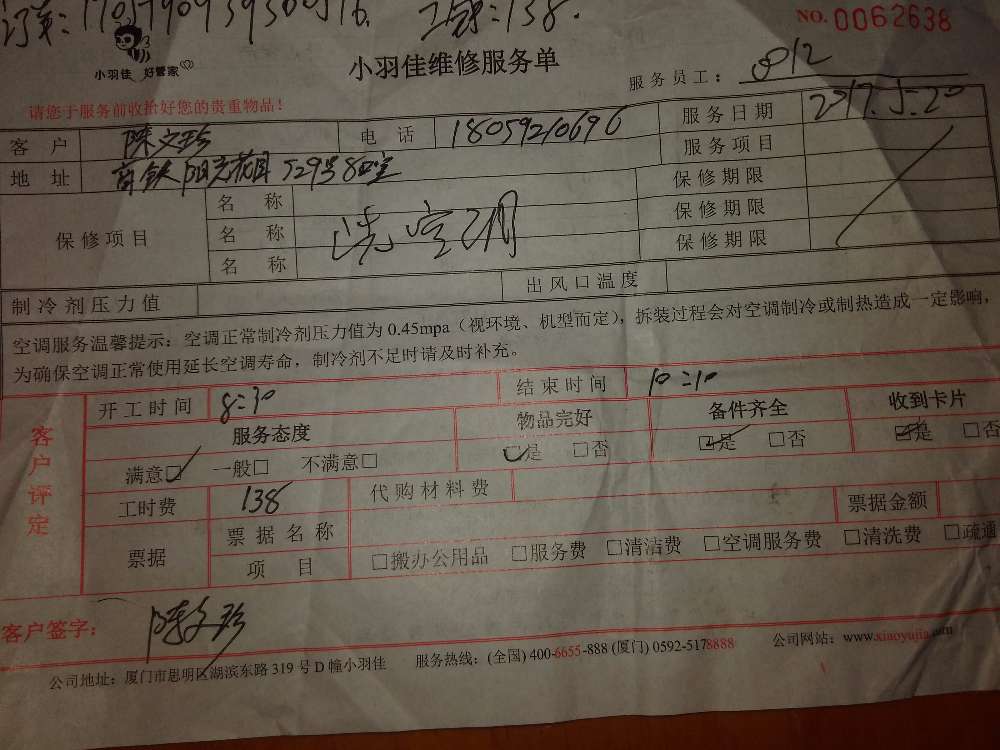 NO. 0062638
小羽佳 好管家
小羽佳维修服务单
服务员工: 812
请您于服务前收拾好您的贵重物品!
客户 陈文珍 电话 18059210696 服务日期 2017.5.20
地址 阳光花园 529号 服务项目
保修项目 名称 洗空调 保修期限
名称 保修期限
名称 保修期限
制冷剂压力值 出风口温度
空调服务温馨提示: 空调正常制冷剂压力值为 0.45mpa (视环境、机型而定), 拆装过程会对空调制冷或制热造成一定影响,
为确保空调正常使用延长空调寿命, 制冷剂不足时请及时补充。
客户评定
开工时间 8:30 结束时间 10:10
服务态度 物品完好 备件齐全 收到卡片
满意□ 一般□ 不满意□ □是 □否 □是 □否 □是 □否
工时费 138 代购材料费
票据 票据名称 票据金额
项目 □搬办公用品 □服务费 □清洁费 □空调服务费 □清洗费 □疏通
客户签字: 陈文珍
公司地址: 厦门市思明区湖滨东路 319 号 D 幢小羽佳 服务热线: (全国) 400-6655-888 (厦门) 0592-5178888 公司网站: www.xiaoyujia.com